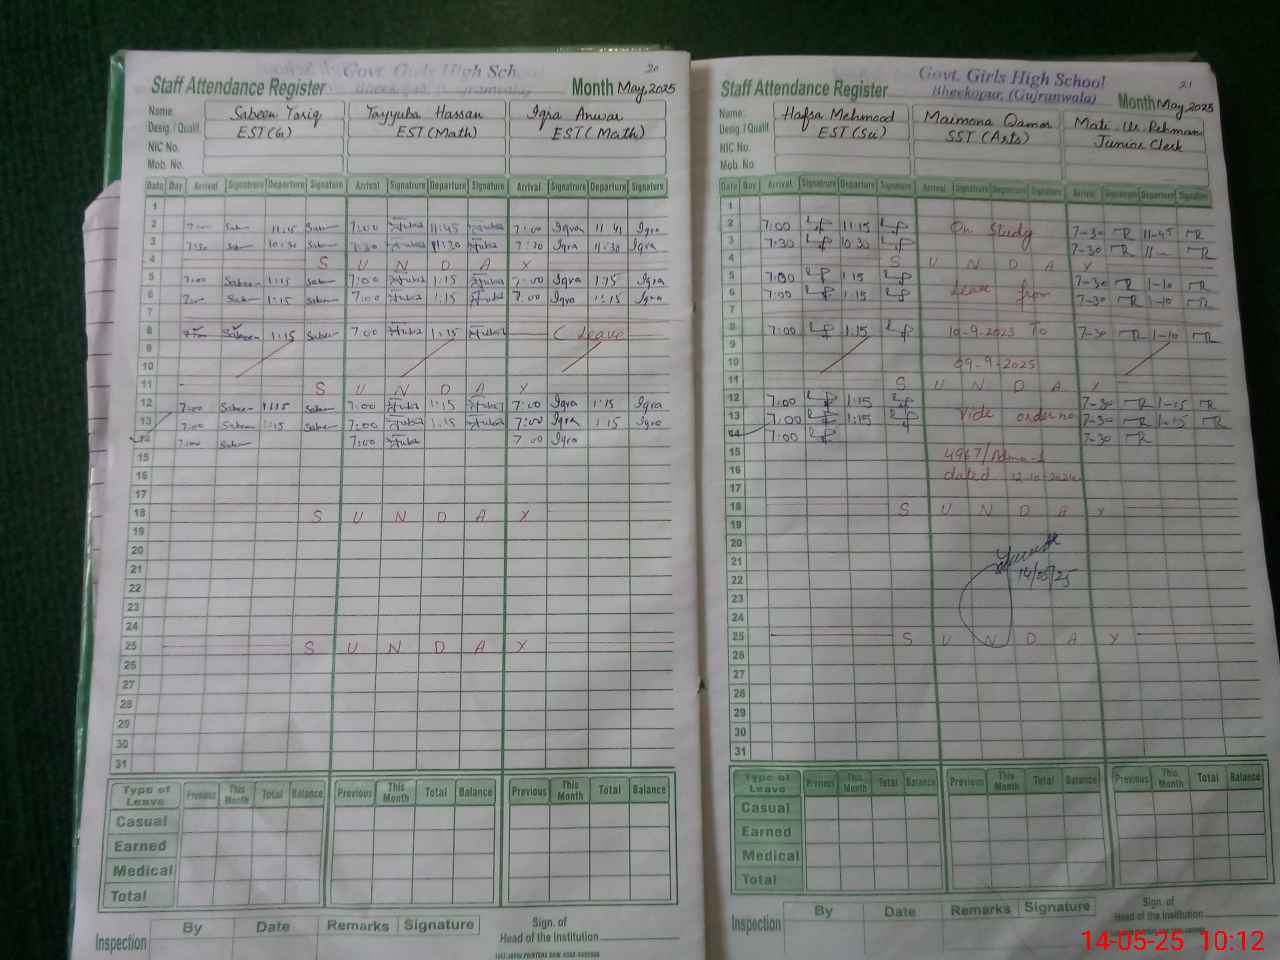 Govt. Girls High Scho
20
Staff Attendance Register
Month May, 2025
Name Sabeen Tariq Tayyuba Hassan Iqra Anwar
Desig. / Qualif. EST (G) EST (Math) EST (Math)
NIC No.
Mob. No.
Date Day Arrival Signature Departure Signature Arrival Signature Departure Signature Arrival Signature Departure Signature
1
2 7:00 11:45 7:00 11:45 7:00 Iqra 11 41 Iqra
3 7:30 10:30 7:30 11:30 7:30 Iqra 11:30 Iqra
4 S U N D A Y
5 7:00 Sabeen 1:15 Sabeen 7:00 1:15 7:00 Iqra 1:15 Iqra
6 7:00 1:15 7:00 1:15 7:00 Iqra 1:15 Iqra
7
8 7:00 Sabeen 1:15 7:00 1:15 Leave
9
10
11 S U N D A Y
12 7:00 Sabeen 1:15 7:00 1:15 7:00 Iqra 1:15 Iqra
13 7:00 Sabeen 1:15 7:00 1:15 7:00 Iqra 1 15 Iqra
14 7:00 7:00 7 00 Iqra
15
16
17
18 S U N D A Y
19
20
21
22
23
24
25 S U N D A Y
26
27
28
29
30
31
Type of Leave Previous This Month Total Balance Previous This Month Total Balance Previous This Month Total Balance
Casual
Earned
Medical
Total
Inspection By Date Remarks Signature
Sign. of
Head of the Institution
Govt. Girls High School
Bheekopur, (Gujranwala)
21
Staff Attendance Register
Month May, 2025
Name Hafsa Mehmood Maimona Qamar Mati-Ur-Rehman
Desig. / Qualif. EST (Sci) SST (Arts) Junior Clerk
NIC No.
Mob. No.
Date Day Arrival Signature Departure Signature Arrival Signature Departure Signature Arrival Signature Departure Signature
1
2 7:00 11:15 On Study 7-30 11-45
3 7:30 10:30 7-30 11
4 S U N D A Y
5 7:00 1:15 Leave from 7-30 1-10
6 7:00 1:15 7-30 1-10
7
8 7:00 1:15 10-9-2023 To 7-30 1-10
9
10 09-9-2025
11 S U N D A Y
12 7:00 1:15 7-30 1-15
13 7:00 1:15 Vide order no 7-30 1-15
14 7:00 7-30
15 4967/Admn-I
16 dated 12-10-2024
17
18 S U N D A Y
19
20
21
22 14/05/25
23
24
25 S U N D A Y
26
27
28
29
30
31
Type of Leave Previous This Month Total Balance Previous This Month Total Balance Previous This Month Total Balance
Casual
Earned
Medical
Total
Inspection By Date Remarks Signature
Sign. of
Head of the Institution
14-05-25 10:12